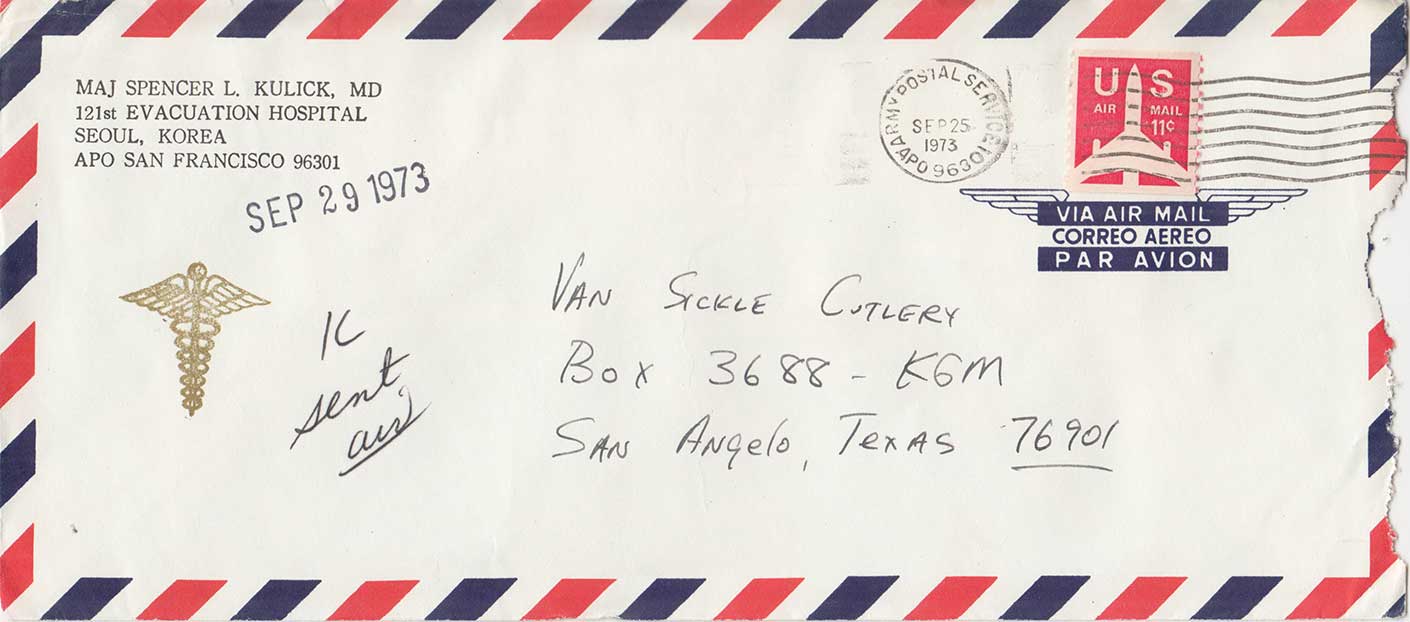 MAJ SPENCER L. KULICK, MD
121st EVACUATION HOSPITAL
SEOUL, KOREA
APO SAN FRANCISCO 96301
SEP 29 1973
ARMY POSTAL SERVICE
SEP 25
1973
APO 96301
U S
AIR MAIL
11¢
VIA AIR MAIL
CORREO AEREO
PAR AVION
1C
sent
air
VAN SICKLE CUTLERY
BOX 3688 - KGM
SAN ANGELO, TEXAS 76901